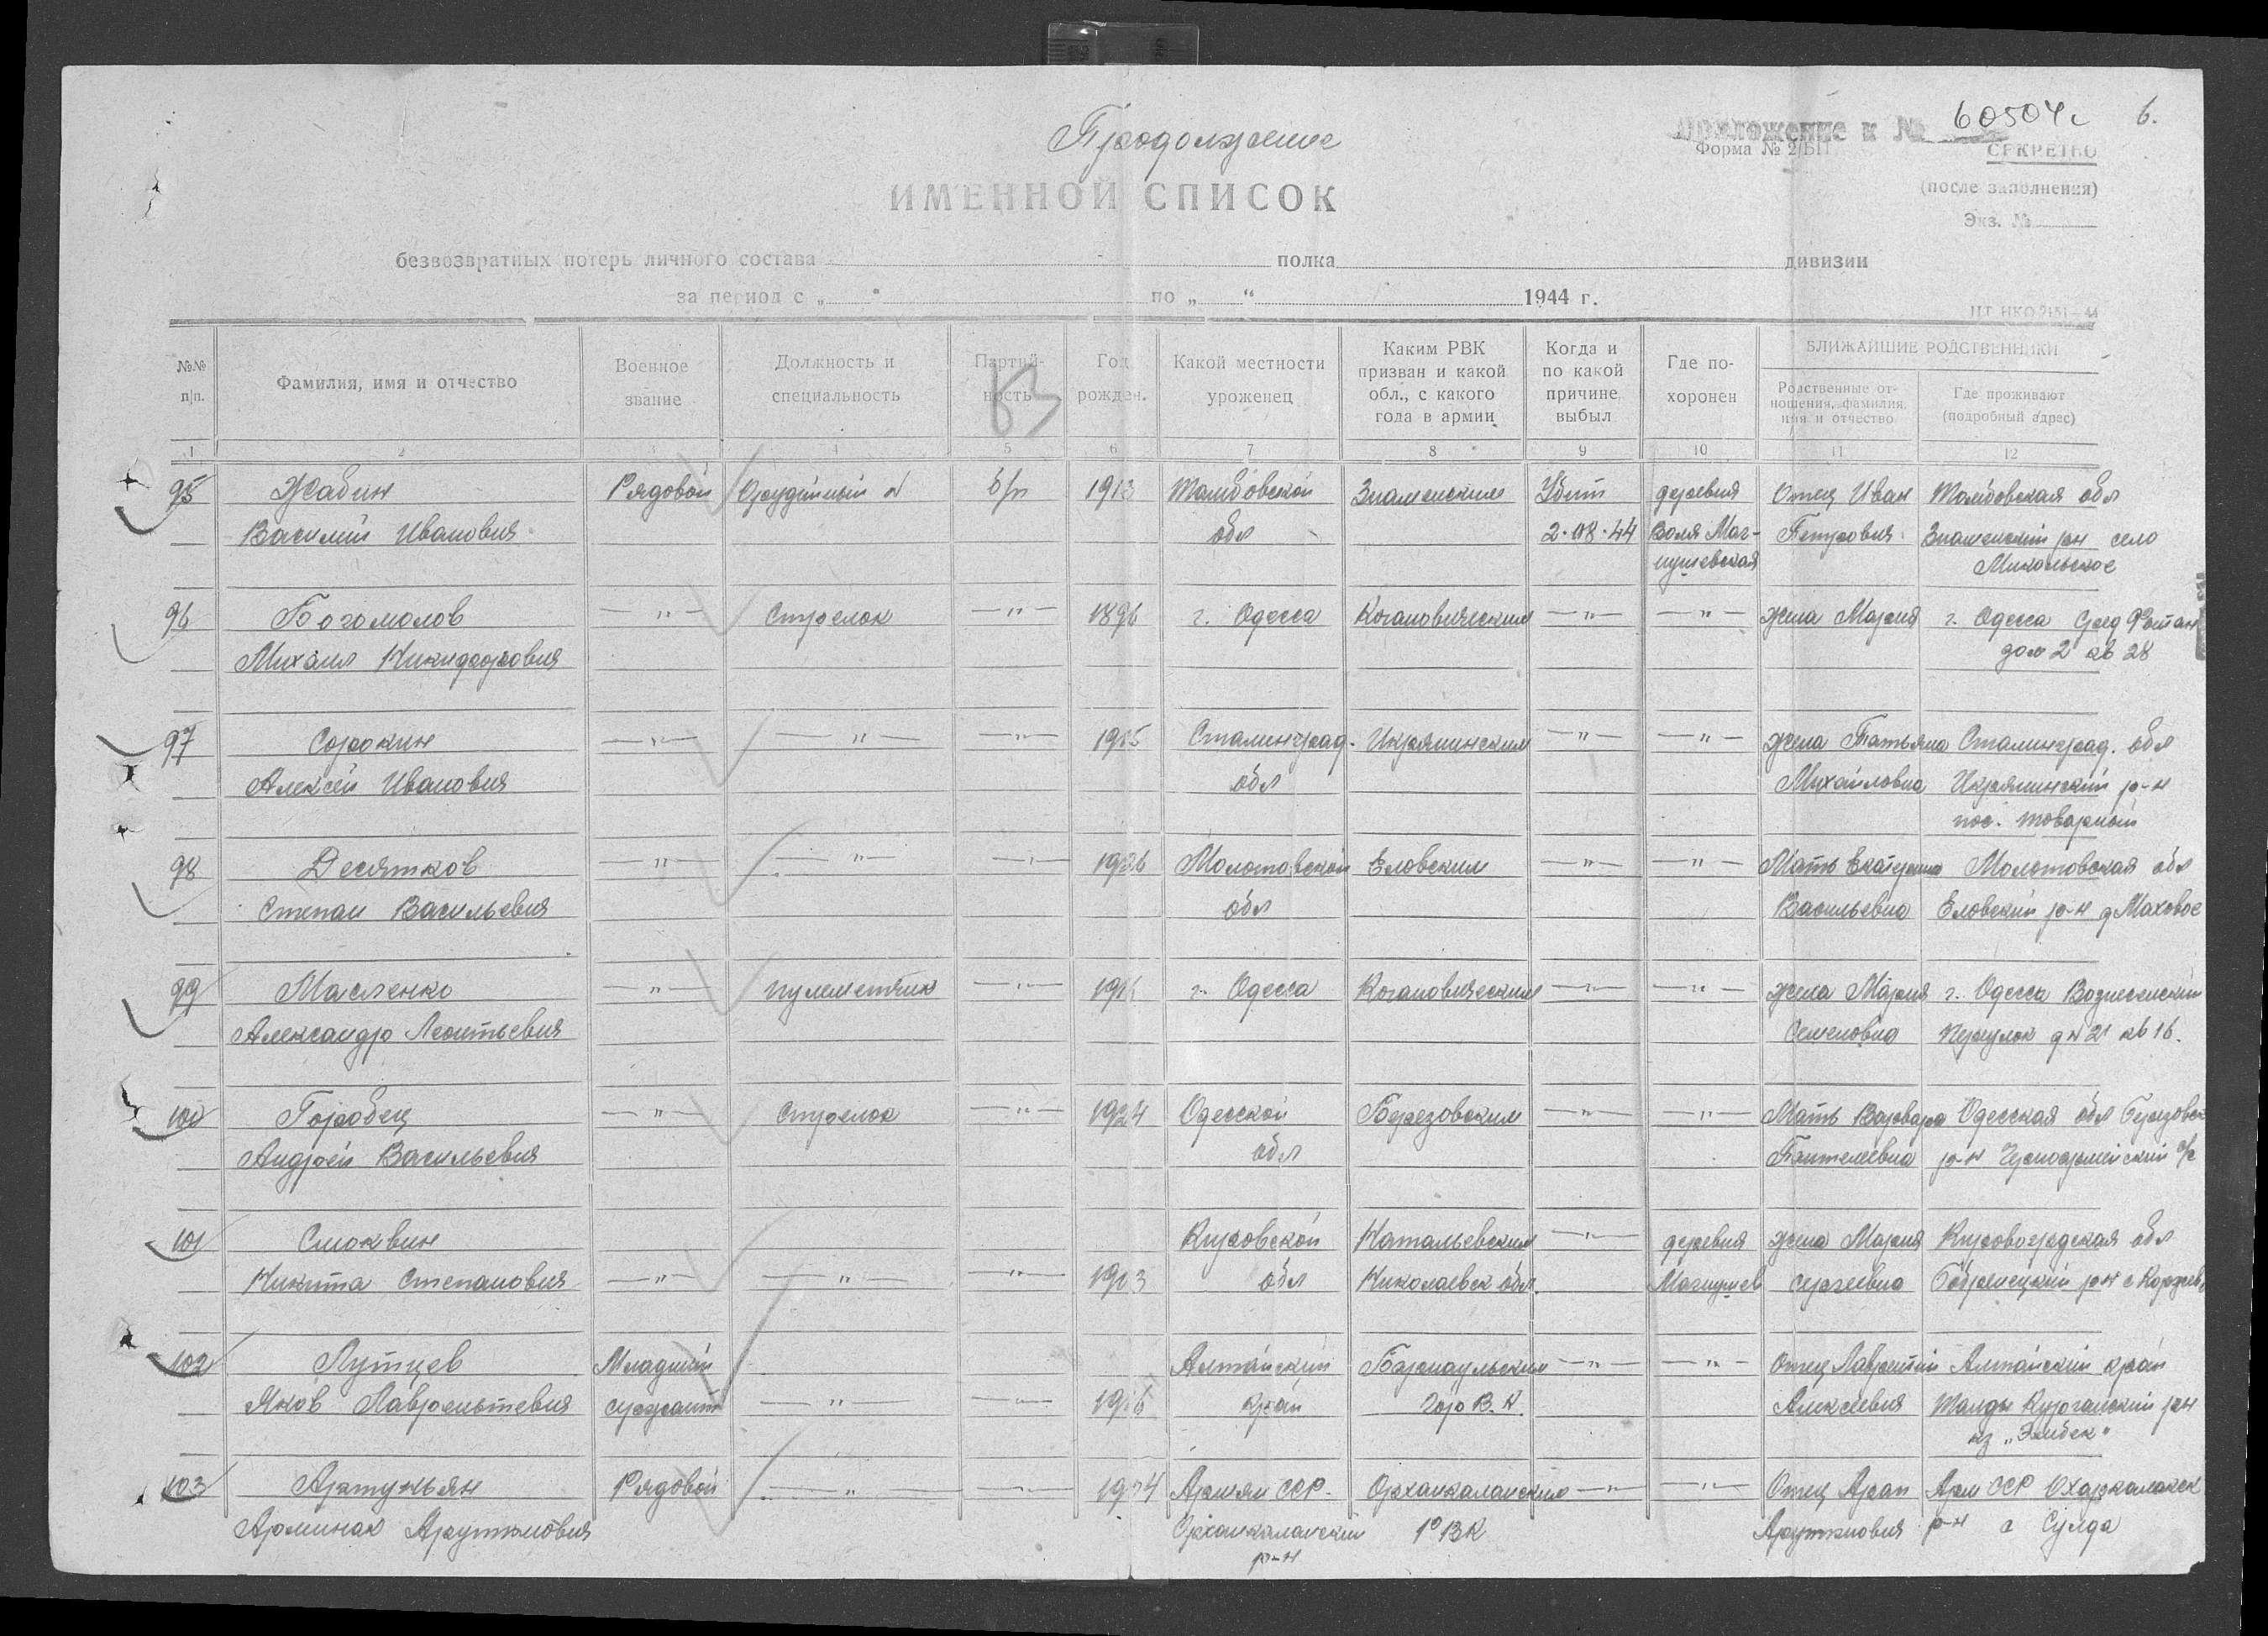 Продолжение
Приложение к № 60504с 6.
Форма № 2/БП
СЕКРЕТНО
(после заполнения)
Экз. №
ИМЕННОЙ СПИСОК
безвозвратных потерь личного состава полка дивизии
за период с „ “ по „ “ 1944 г.
№№ п/п.
Фамилия, имя и отчество
Военное звание
Должность и специальность
Партийность
Год рожден.
Какой местности уроженец
Каким РВК призван и какой обл., с какого года в армии
Когда и по какой причине выбыл
Где похоронен
БЛИЖАЙШИЕ РОДСТВЕННИКИ
Родственные отношения, фамилия, имя и отчество
Где проживают (подробный адрес)
1 2 3 4 5 6 7 8 9 10 11 12
95 Жабин Рядовой Орудийный № б/п 1913 Тамбовской Знаменским Убит деревня Отец Иван Тамбовская обл
Василий Иванович обл 2.08.44 Воля Маг- Петрович Знаменский рн село
нушевская Никольское
96 Богомолов —"— Стрелок —"— 1896 г. Одесса Когановическим —"— —"— жена Мария г. Одесса Сред Фотан
Михаил Никифорович дом 2 кв 28
97 Сорокин —"— —"— —"— 1905 Сталинград. Икрянинским —"— —"— жена Татьяна Сталинград. обл
Алексей Иванович обл Михайловна Икрянинский р-н
пос. товарный
98 Десятков —"— —"— —"— 1926 Молотовской Еловским —"— —"— Мать Екатерина Молотовская обл
Степан Васильевич обл Васильевна Еловский р-н д Маховое
99 Масленко —"— пулеметчик —"— г. Одесса Когановическим —"— —"— жена Мария г. Одесса Вознесенский
Александр Леонтьевич Семеновна переулок д № 21 кв 16.
100 Горобец —"— Стрелок —"— 1924 Одесской Березовским —"— —"— Мать Варвара Одесская обл Березовск
Андрей Васильевич обл Пантелеевна р-н с/с
101 Смоквин Кировской Катальевским —"— деревня жена Мария Кировоградская обл
Никита Степанович —"— —"— —"— 1903 обл Николаевск обл. Магнушев Сергеевна Бобринецкий р-н с
102 Лутцев Младший Алтайский Барнаульским —"— —"— Отец Лаврентий Алтайский край
Яков Лаврентьевич сержант —"— —"— край Гор В.К. Алексеевич Талды Курганский рн
кз
103 Арутунян Рядовой —"— —"— 1904 Армян ССР. Орханкаланским —"— —"— Отец Арам Арм ССР Охаркалакск
Арминак Арутинович Орханкаланский РВК Арутинович р-н с Сулда
р-н